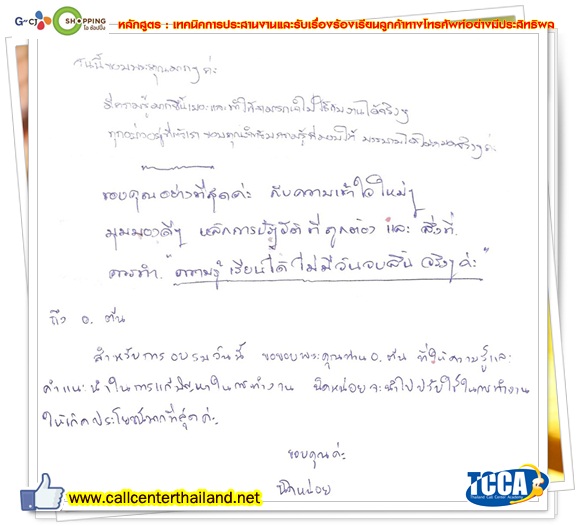 G CJ O SHOPPING
โอ ช้อปปิ้ง
หลักสูตร : เทคนิคการประสานงานและรับเรื่องร้องเรียนลูกค้าทางโทรศัพท์อย่างมีประสิทธิผล
วันนี้ขอบพระคุณมากๆ ค่ะ
ขอบคุณอย่างที่สุดค่ะ กับความเข้าใจใหม่ๆ
มุมมองดีๆ หลักการปฏิบัติที่ถูกต้อง และ สิ่งที่
ควรทำ. "ความรู้ เรียนได้ ไม่มีวันจบสิ้น จริงๆ ค่ะ"
ถึง อ. ต้น
สำหรับการอบรมวันนี้ ขอขอบพระคุณท่าน อ. ต้น ที่ให้ความรู้และ
คำแนะนำในการแก้ปัญหาในการทำงาน นิดหน่อยจะนำไปปรับใช้ในการทำงาน
ให้เกิดประโยชน์มากที่สุดค่ะ
ขอบคุณค่ะ
นิดหน่อย
www.callcenterthailand.net
TCCA
Thailand Call Center Academy